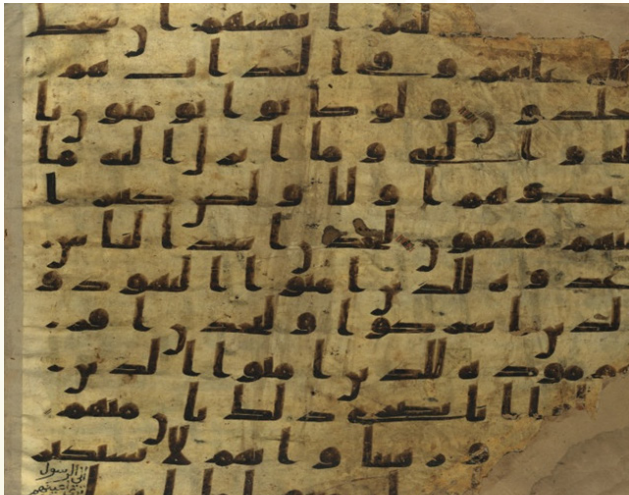 لهم انفسهم ان سخط
الله عليهم وفي العذاب هم
خلدون ولو كانوا يومنون با
لله والنبي وما انزل اليه ما
اتخذوهم اوليا ولكن كثيرا
منهم فسقون لتجدن اشد الناس
عدوه للذين امنوا اليهود و
الذين اشركوا ولتجدن اقر
بهم موده للذين امنوا الذين
قالوا انا نصرى ذلك بان منهم
وانهم لا يستكبر
الى الرسول